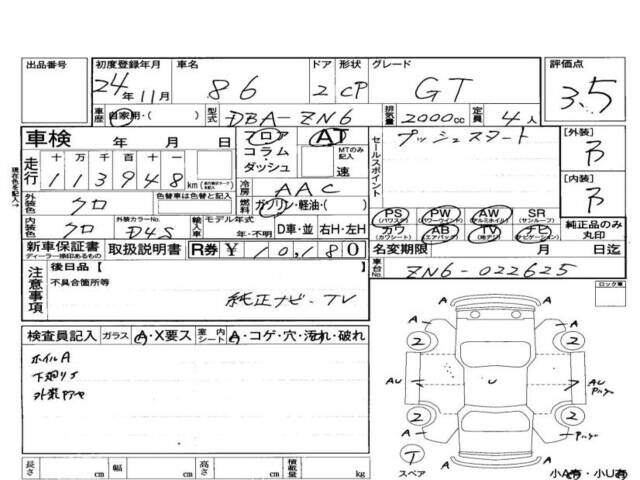 出品番号 初度登録年月 車名 ドア 形状 グレード 評価点
24年11月 86 2 CP GT 3.5
車歴 自家用・( ) 型式 DBA-ZN6 排気量 2000cc 定員 4人
車検 年 月 日 フロア AT セールスポイント プッシュスタート [外装]
コラム・ダッシュ MTのみ記入 速
走行 十万 千百十一
113948 km
冷房 AAC [内装]
外装色 クロ 色替車は色替と記入 燃料 ガソリン・軽油・( )
PS (パワステ) PW (パワーウインド) AW (アルミホイル) SR (サンルーフ) 純正品のみ丸印
内装色 クロ 外装カラーNo. D4S 輸入車 モデル年式 年・不明 D車・並 右H・左H
カワ (カワシート) AB (エアバッグ) TV (地デジ) ナビ (ナビゲーション)
新車保証書 取扱説明書 R券 ¥10,180 名変期限 月 日迄
ディーラー捺印あるもの
注意事項 後日品 [ ] 車台No. ZN6-022625
不具合箇所等 ロック車
純正ナビ-TV
検査員記入 ガラス A・X要ス 室内シート A・コゲ・穴・汚れ・破れ
ホイルA
下廻りS
A A
2 2
AU U AU
2 2
A
T
スペア
長さ cm 幅 cm 高さ cm 積載量 kg 小A有・小U有